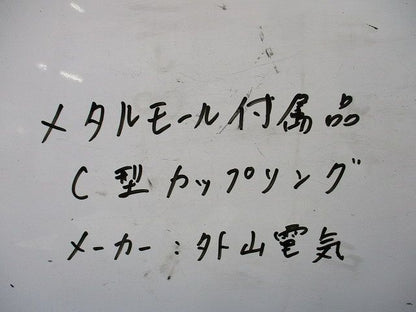 メタルモール付属品
C型カップリング
メーカー：外山電気